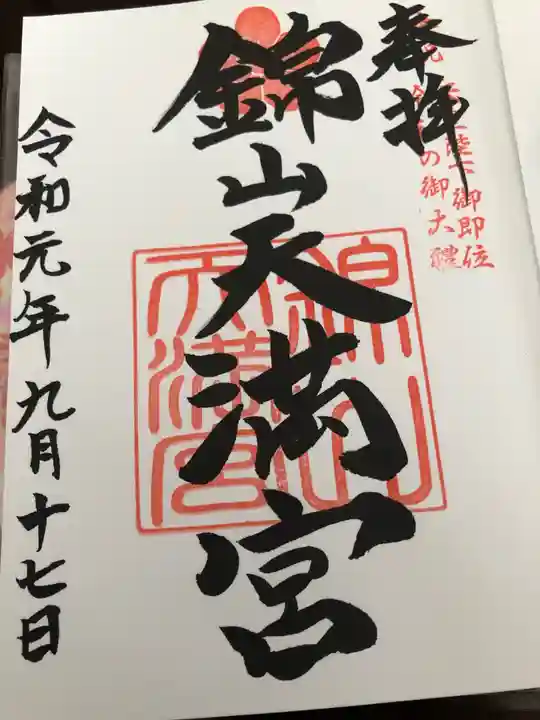 奉拝
天皇陛下御即位
の御大礼
錦山天満宮
錦山
天満宮
令和元年九月十七日